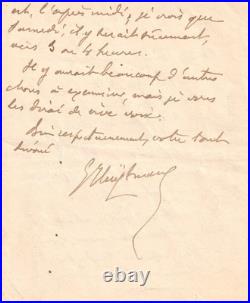 est, l'après midi, je crois que
samedi, il y serait sûrement,
vers 3 ou 4 heures.
Il y aurait beaucoup d'autres
choses à examiner, mais je vous
les dirai de vive voix.
Bien respectueusement, votre tout
dévoué